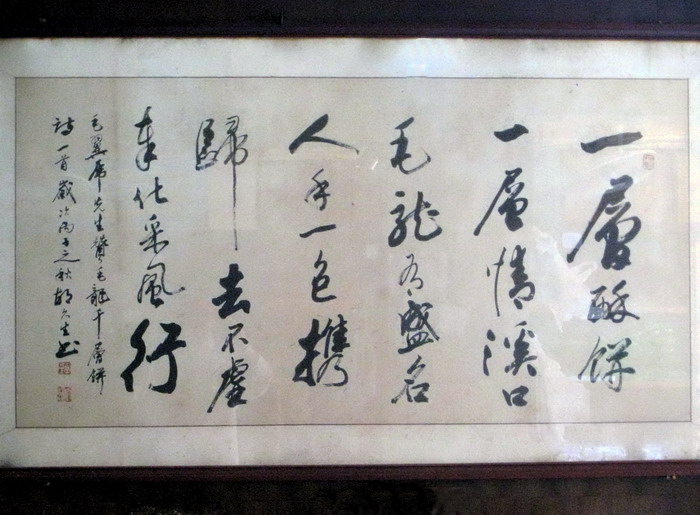 一層酥餅
一層情溪口
毛龍有盛名
人手一包攜
歸去不虛
奉化采風行
毛翼虎先生贊毛龍千層餅
詩一首歲次丙子之秋胡
書